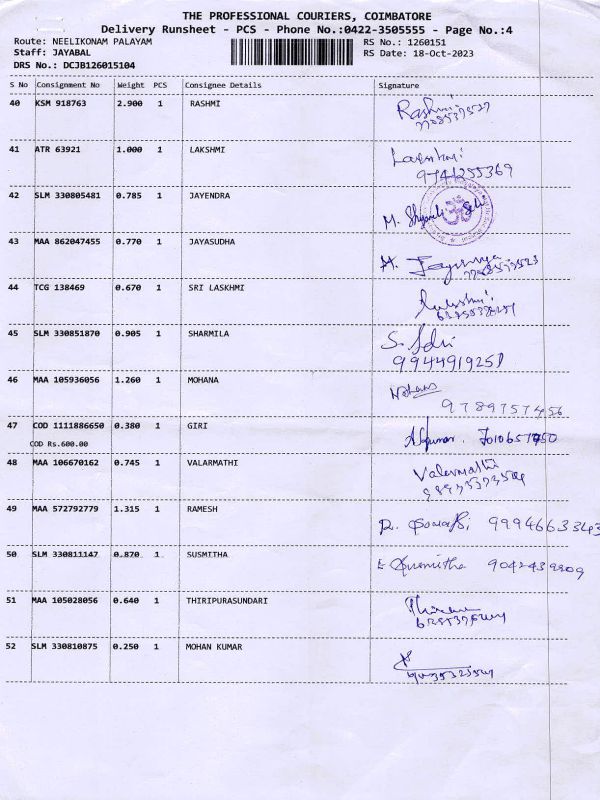 THE PROFESSIONAL COURIERS, COIMBATORE
Delivery Runsheet - PCS - Phone No.:0422-3505555 - Page No.:4
Route: NEELIKONAM PALAYAM
RS No.: 1260151
Staff: JAYABAL
RS Date: 18-Oct-2023
DRS No.: DCJB126015104
S No Consignment No Weight PCS Consignee Details Signature
40 KSM 918763 2.900 1 RASHMI Rashmi
41 ATR 63921 1.000 1 LAKSHMI Laxmi
9741255369
42 SLM 330805481 0.785 1 JAYENDRA M.
43 MAA 862047455 0.770 1 JAYASUDHA
44 TCG 138469 0.670 1 SRI LASKHMI
45 SLM 330851870 0.905 1 SHARMILA S.
9944919251
46 MAA 105936056 1.260 1 MOHANA Mohana
9789757456
47 COD 1111886650 0.380 1 GIRI
COD Rs.600.00
48 MAA 106670162 0.745 1 VALARMATHI Valarmathi
49 MAA 572792779 1.315 1 RAMESH 9994663343
50 SLM 330811147 0.870 1 SUSMITHA Susmitha 9042439909
51 MAA 105028056 0.640 1 THIRIPURASUNDARI
52 SLM 330810875 0.250 1 MOHAN KUMAR